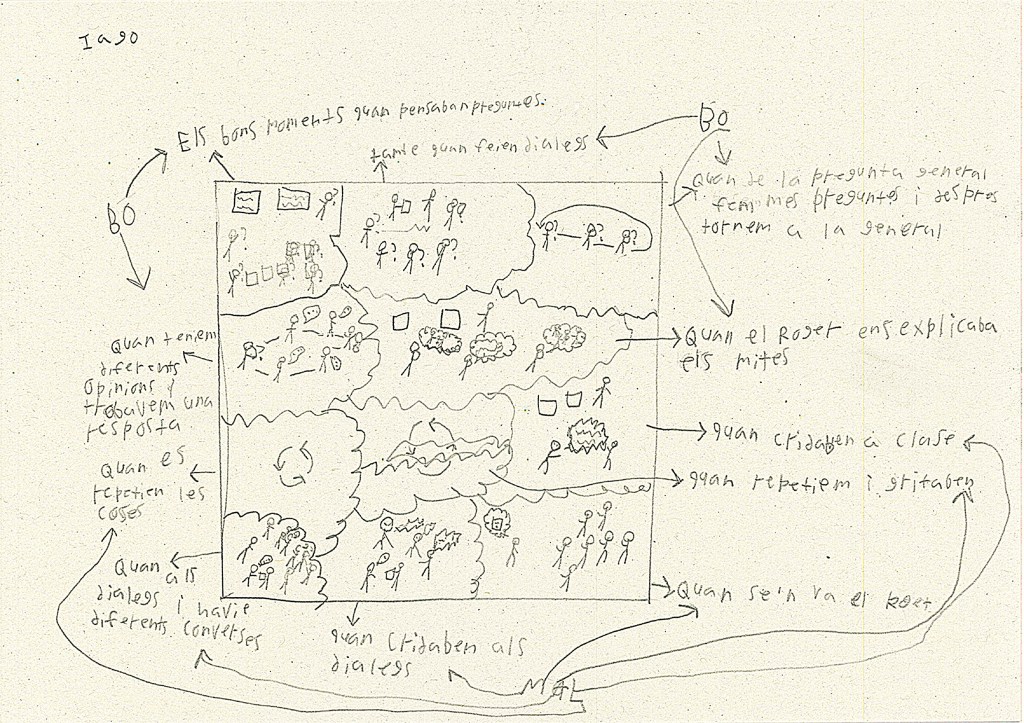 Iago
Els bons moments quan pensaban preguntes.
també quan feien dialegs
BO
BO
Quan de la pregunta general
fem mes preguntes i despres
tornem a la general
Quan teniem
diferents
opinions i
trobavem una
resposta
Quan el Roger ens explicaba
els mites
quan cridaben a clase
Quan es
repetien les
coses
quan repetiem i gritaben
Quan
als
dialegs i havie
diferents converses
Quan se'n va el
quan cridaben als
dialegs
MAL